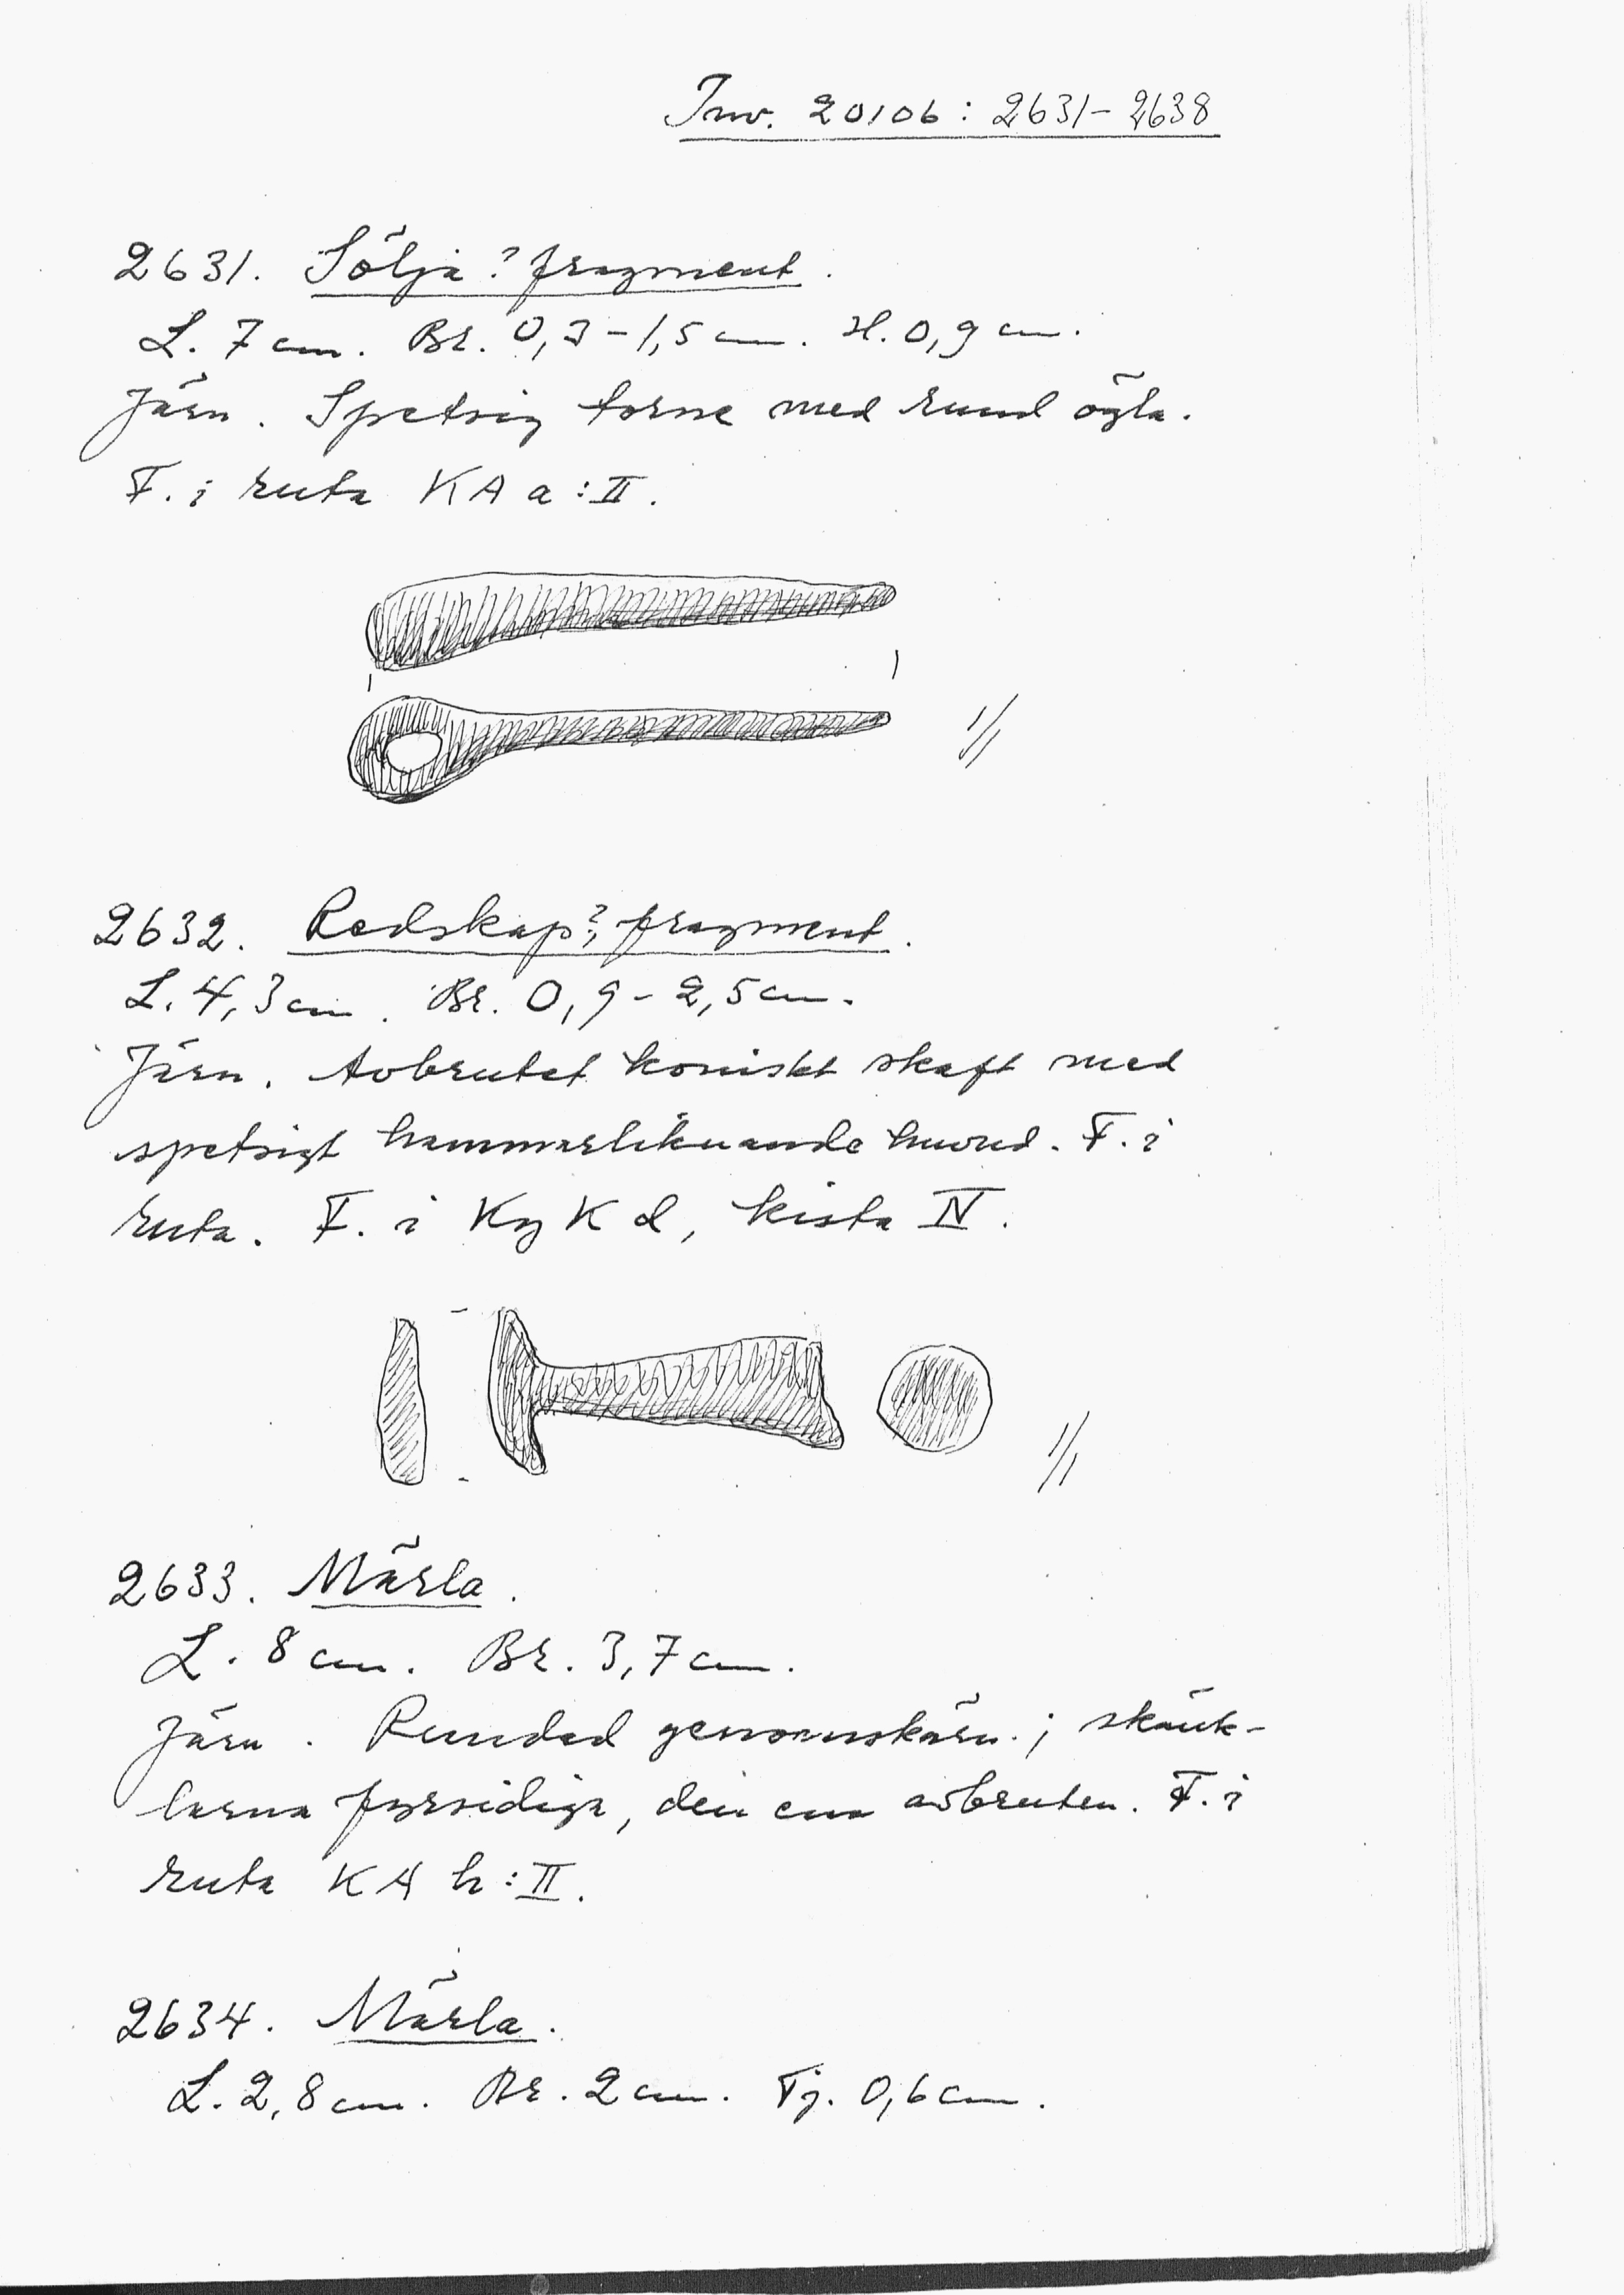 Inv. 20106 : 2631-2638
2631. Sölja? fragment.
L. 7 cm. Br. 0,3-1,5 cm. H. 0,9 cm.
Järn. Spetsig torne med rund ögla.
F. i ruta KA a:II.
1/1
2632. Redskap?, fragment.
L. 4,3 cm. Br. 0,9-2,5 cm.
Järn. Avbrutet koniskt skaft med
spetsigt hammarliknande huvud. F. i
ruta. F. i Kg K d, kista IV.
1/1
2633. Märla.
L. 8 cm. Br. 3,7 cm.
Järn. Rundad genomskärn.; skänk-
larna fyrsidiga, den ena avbruten. F. i
ruta KA h:II.
2634. Märla.
L. 2,8 cm. Br. 2 cm. Tj. 0,6 cm.